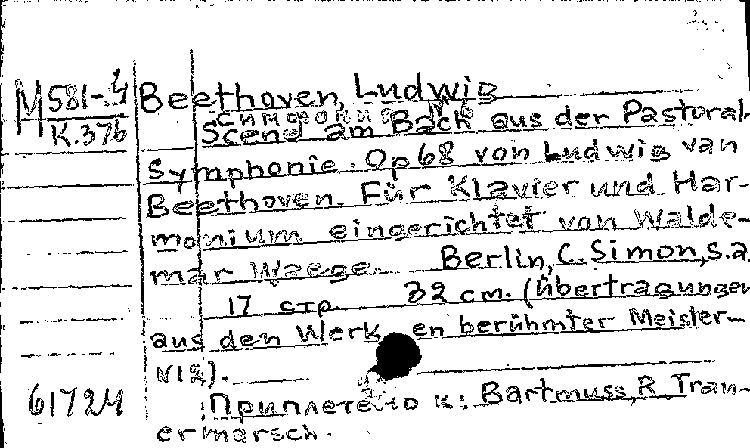 М 581-4
К.376
Beethoven, Ludwig
Симфония № 6
Scene am Bach aus der Pastoral-
Symphonie. Op 68 von Ludwig van
Beethoven. Für Klavier und Har-
monium eingerichtet von Walde-
mar Waege. Berlin, C. Simon, s.a.
17 стр. 32 см. (Übertragungen
aus den Werken berühmter Meister
VIII).
61724
Приплетено к: Bartmuss, R. Trau-
ermarsch.